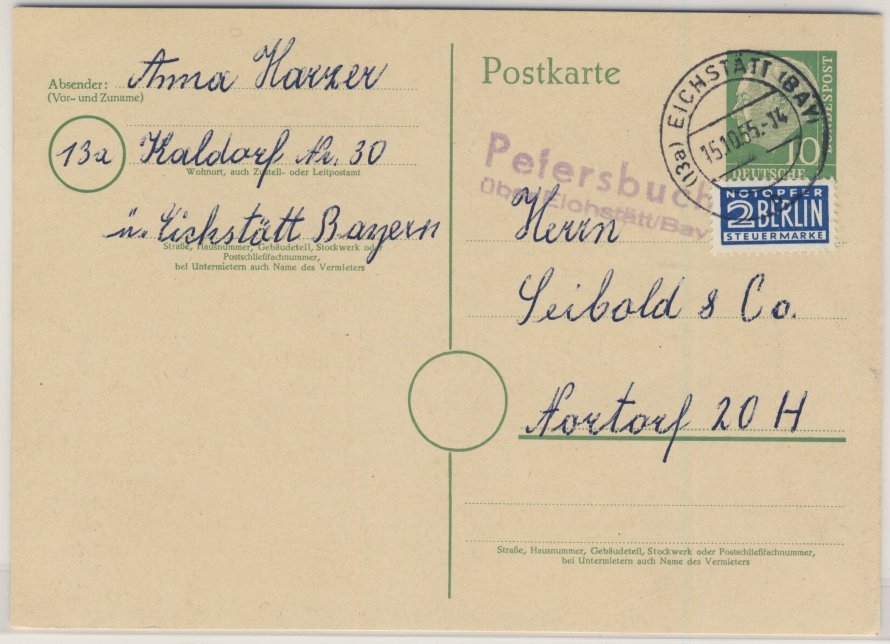 Absender: Anna Harzer
(Vor- und Zuname)
13a Kaldorf Nr. 30
Wohnort, auch Zustell- oder Leitpostamt
ü. Eichstätt Bayern
Straße, Hausnummer, Gebäudeteil, Stockwerk oder
Postschließfachnummer,
bei Untermietern auch Name des Vermieters
Postkarte
(13a) EICHSTÄTT (BAY)
15.10.55.-14
10
DEUTSCHE
BUNDESPOST
NOTOPFER
2 BERLIN
STEUERMARKE
Petersbuch
über Eichstätt/Bay
Herrn
Seibold & Co.
Nortorf 20 H
Straße, Hausnummer, Gebäudeteil, Stockwerk oder Postschließfachnummer,
bei Untermietern auch Name des Vermieters